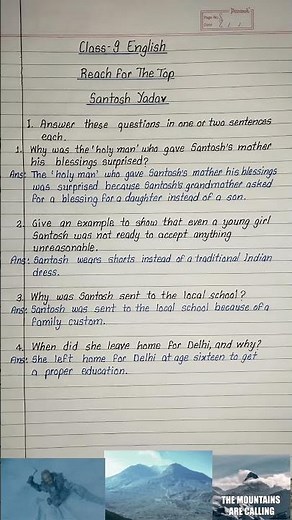 Class-9 English
Reach For The Top
Santosh Yadav
I. Answer these questions in one or two sentences
each.
1. Why was the 'holy man' who gave Santosh's mother
his blessings surprised?
Ans: The 'holy man' who gave Santosh's mother his blessings
was surprised because Santosh's grandmother asked
for a blessing for a daughter instead of a son.
2. Give an example to show that even a young girl
Santosh was not ready to accept anything
unreasonable.
Ans: Santosh wears shorts instead of a traditional Indian
dress.
3. Why was Santosh sent to the local school?
Ans: Santosh was sent to the local school because of a
family custom.
4. When did she leave home for Delhi, and why?
Ans: She left home for Delhi at age sixteen to get
a proper education.
THE MOUNTAINS
ARE CALLING